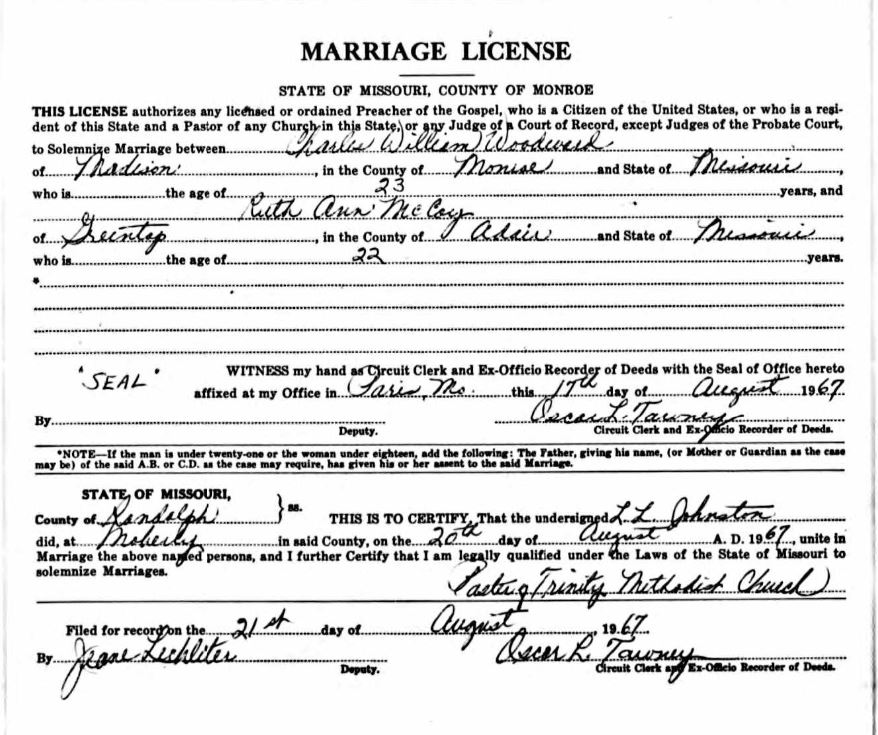 MARRIAGE LICENSE
STATE OF MISSOURI, COUNTY OF MONROE
THIS LICENSE authorizes any licensed or ordained Preacher of the Gospel, who is a Citizen of the United States, or who is a resi-
dent of this State and a Pastor of any Church in this State, or any Judge of a Court of Record, except Judges of the Probate Court,
to Solemnize Marriage between Charles William Woodward
of Madison, in the County of Monroe and State of Missouri,
who is the age of 23 years, and
Ruth Ann McCoy
of Greentop, in the County of Adair and State of Missouri,
who is the age of 22 years.
*
"SEAL" WITNESS my hand as Circuit Clerk and Ex-Officio Recorder of Deeds with the Seal of Office hereto
affixed at my Office in Paris, Mo. this 17th day of August 1967
By Oscar L. Tawney
Deputy. Circuit Clerk and Ex-Officio Recorder of Deeds.
*NOTE—If the man is under twenty-one or the woman under eighteen, add the following: The Father, giving his name, (or Mother or Guardian as the case
may be) of the said A.B. or C.D. as the case may require, has given his or her assent to the said Marriage.
STATE OF MISSOURI,
County of Randolph } ss. THIS IS TO CERTIFY, That the undersigned L. L. Johnston
did, at Moberly in said County, on the 20th day of August A. D. 1967, unite in
Marriage the above named persons, and I further Certify that I am legally qualified under the Laws of the State of Missouri to
solemnize Marriages.
Pastor of Trinity Methodist Church
Filed for record on the 21st day of August, 1967.
By Jeane Lechliter Oscar L. Tawney
Deputy. Circuit Clerk and Ex-Officio Recorder of Deeds.